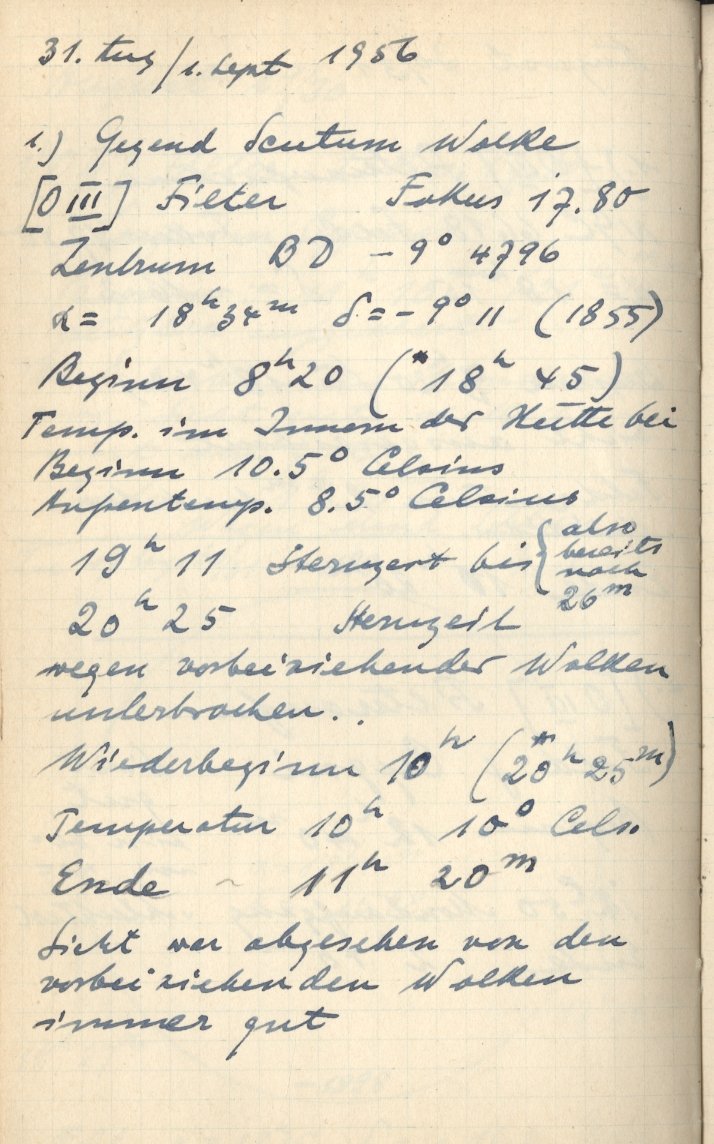 31. Aug / 1. Sept 1956
1.) Gegend Scutum Wolke
[O III] Filter Fokus 17.80
Zentrum BD - 9° 4796
α = 18ʰ 34ᵐ δ = - 9° 11 (1855)
Beginn 8ʰ 20 (* 18ʰ 45)
Temp. im Innern der Hütte bei
Beginn 10.5° Celsius
Außentemp. 8.5° Celsius
19ʰ 11 Sternzeit bis { also bereits nach 26ᵐ
20ʰ 25 Sternzeit
wegen vorbeiziehender Wolken
unterbrochen.
Wiederbeginn 10ʰ (* 20ʰ 25ᵐ)
Temperatur 10ʰ 10° Cels.
Ende ~ 11ʰ 20ᵐ
Sicht war abgesehen von den
vorbeiziehenden Wolken
immer gut